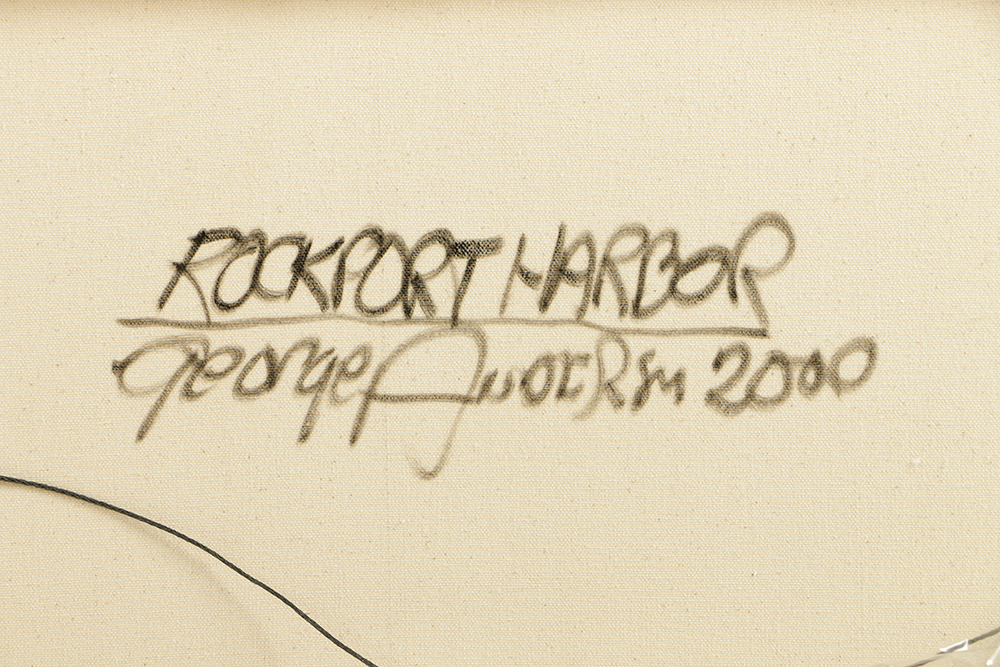 ROCKPORT HARBOR
George 2000